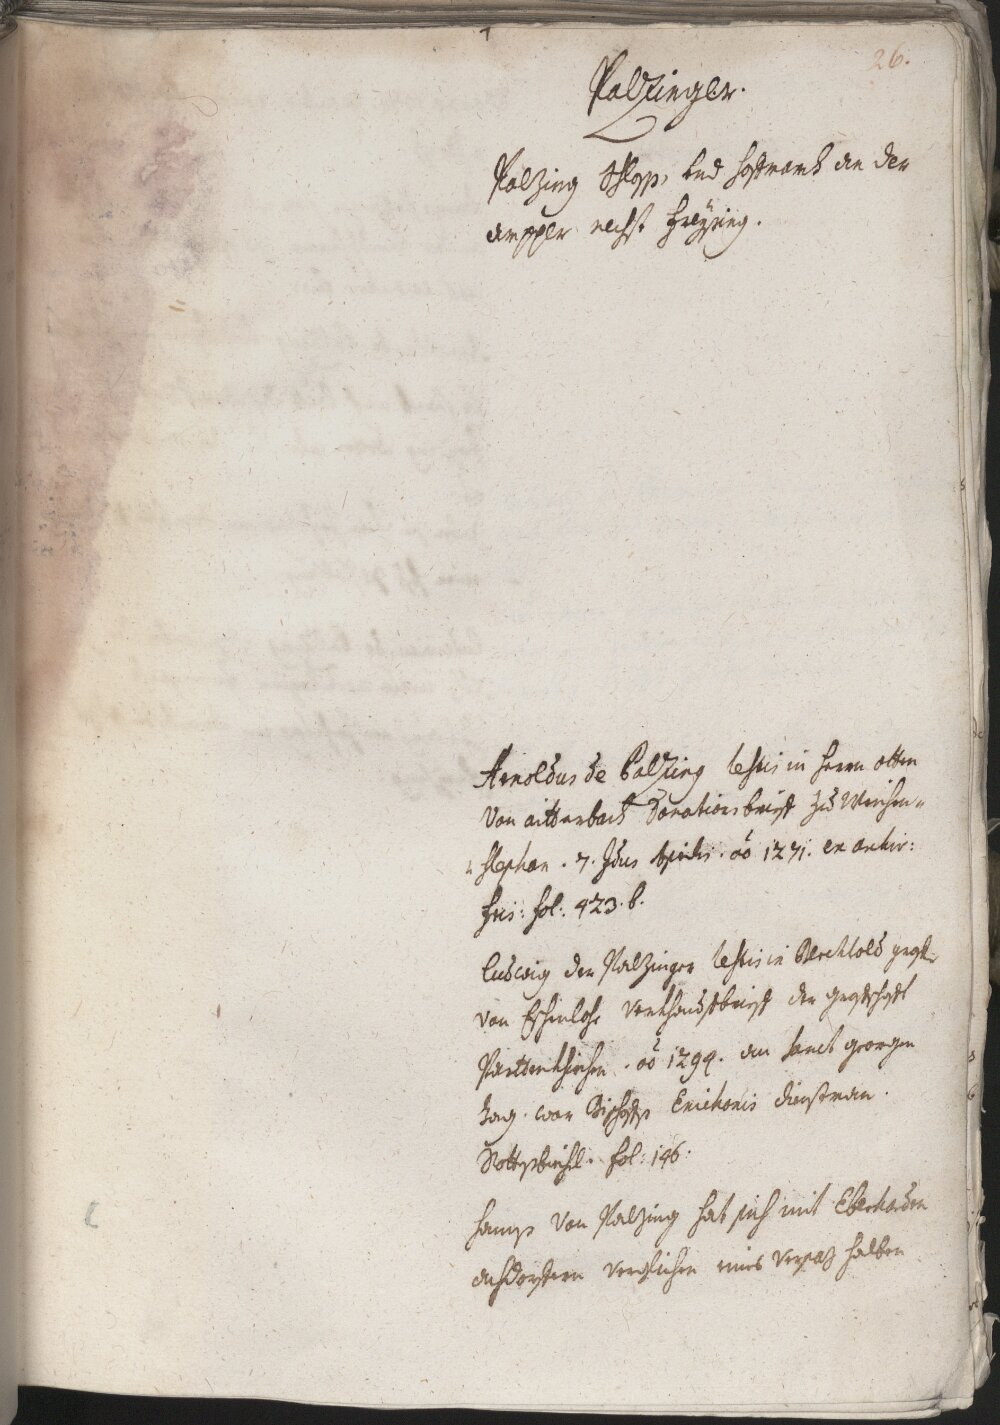 26.
Palzinger.
Palzing Schloß, und hofmarch an der
amper nechst Freÿsing.
Arnoldus de Palzing testis in herrn otten
von aitterbach Donationsbrieff zu Weichen-
stephan. 7. Idus Aprilis. aõ 1271. ex antiq:
fris: fol: 423. b.
Ludwig der Palzinger testis in Berchtold graff
von Eschenlohe verkhauffbrieff der graffschafft
Parttenkhirchen. aõ 1294. an sanct georgen
tag. war Bischoffs Enichonis dienstman.
fol: 146.
hannß von Palzing hat sich mit Eberharden
achdorffern verglichen eines versaz halben